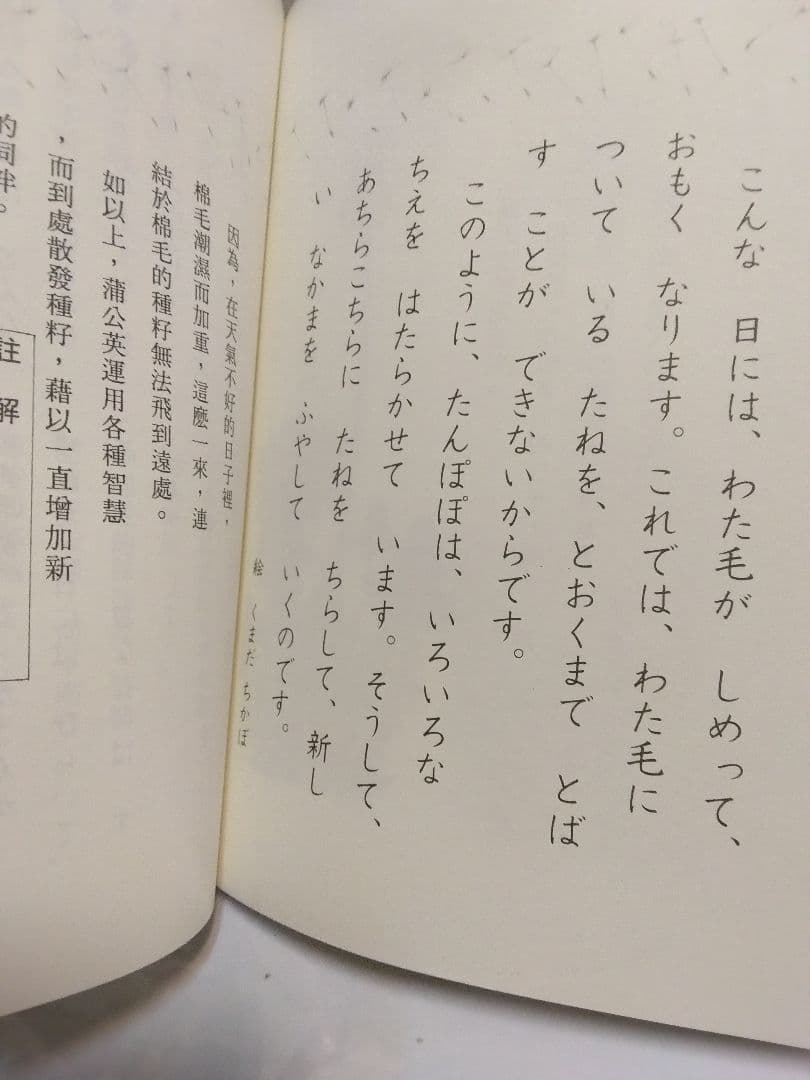 こんな 日には、わた毛が しめって、
おもく なります。これでは、わた毛に
ついて いる たねを、とおくまで とば
す ことが できないからです。
このように、たんぽぽは、いろいろな
ちえを はたらかせて います。そうして、
あちらこちらに たねを ちらして、新し
い なかまを ふやして いくのです。
絵 くまだ ちかぼ
因為，在天氣不好的日子裡，
棉毛潮濕而加重，這麼一來，連
結於棉毛的種籽無法飛到遠處。
如以上，蒲公英運用各種智慧
，而到處散發種籽，藉以一直增加新
的同伴。
註解